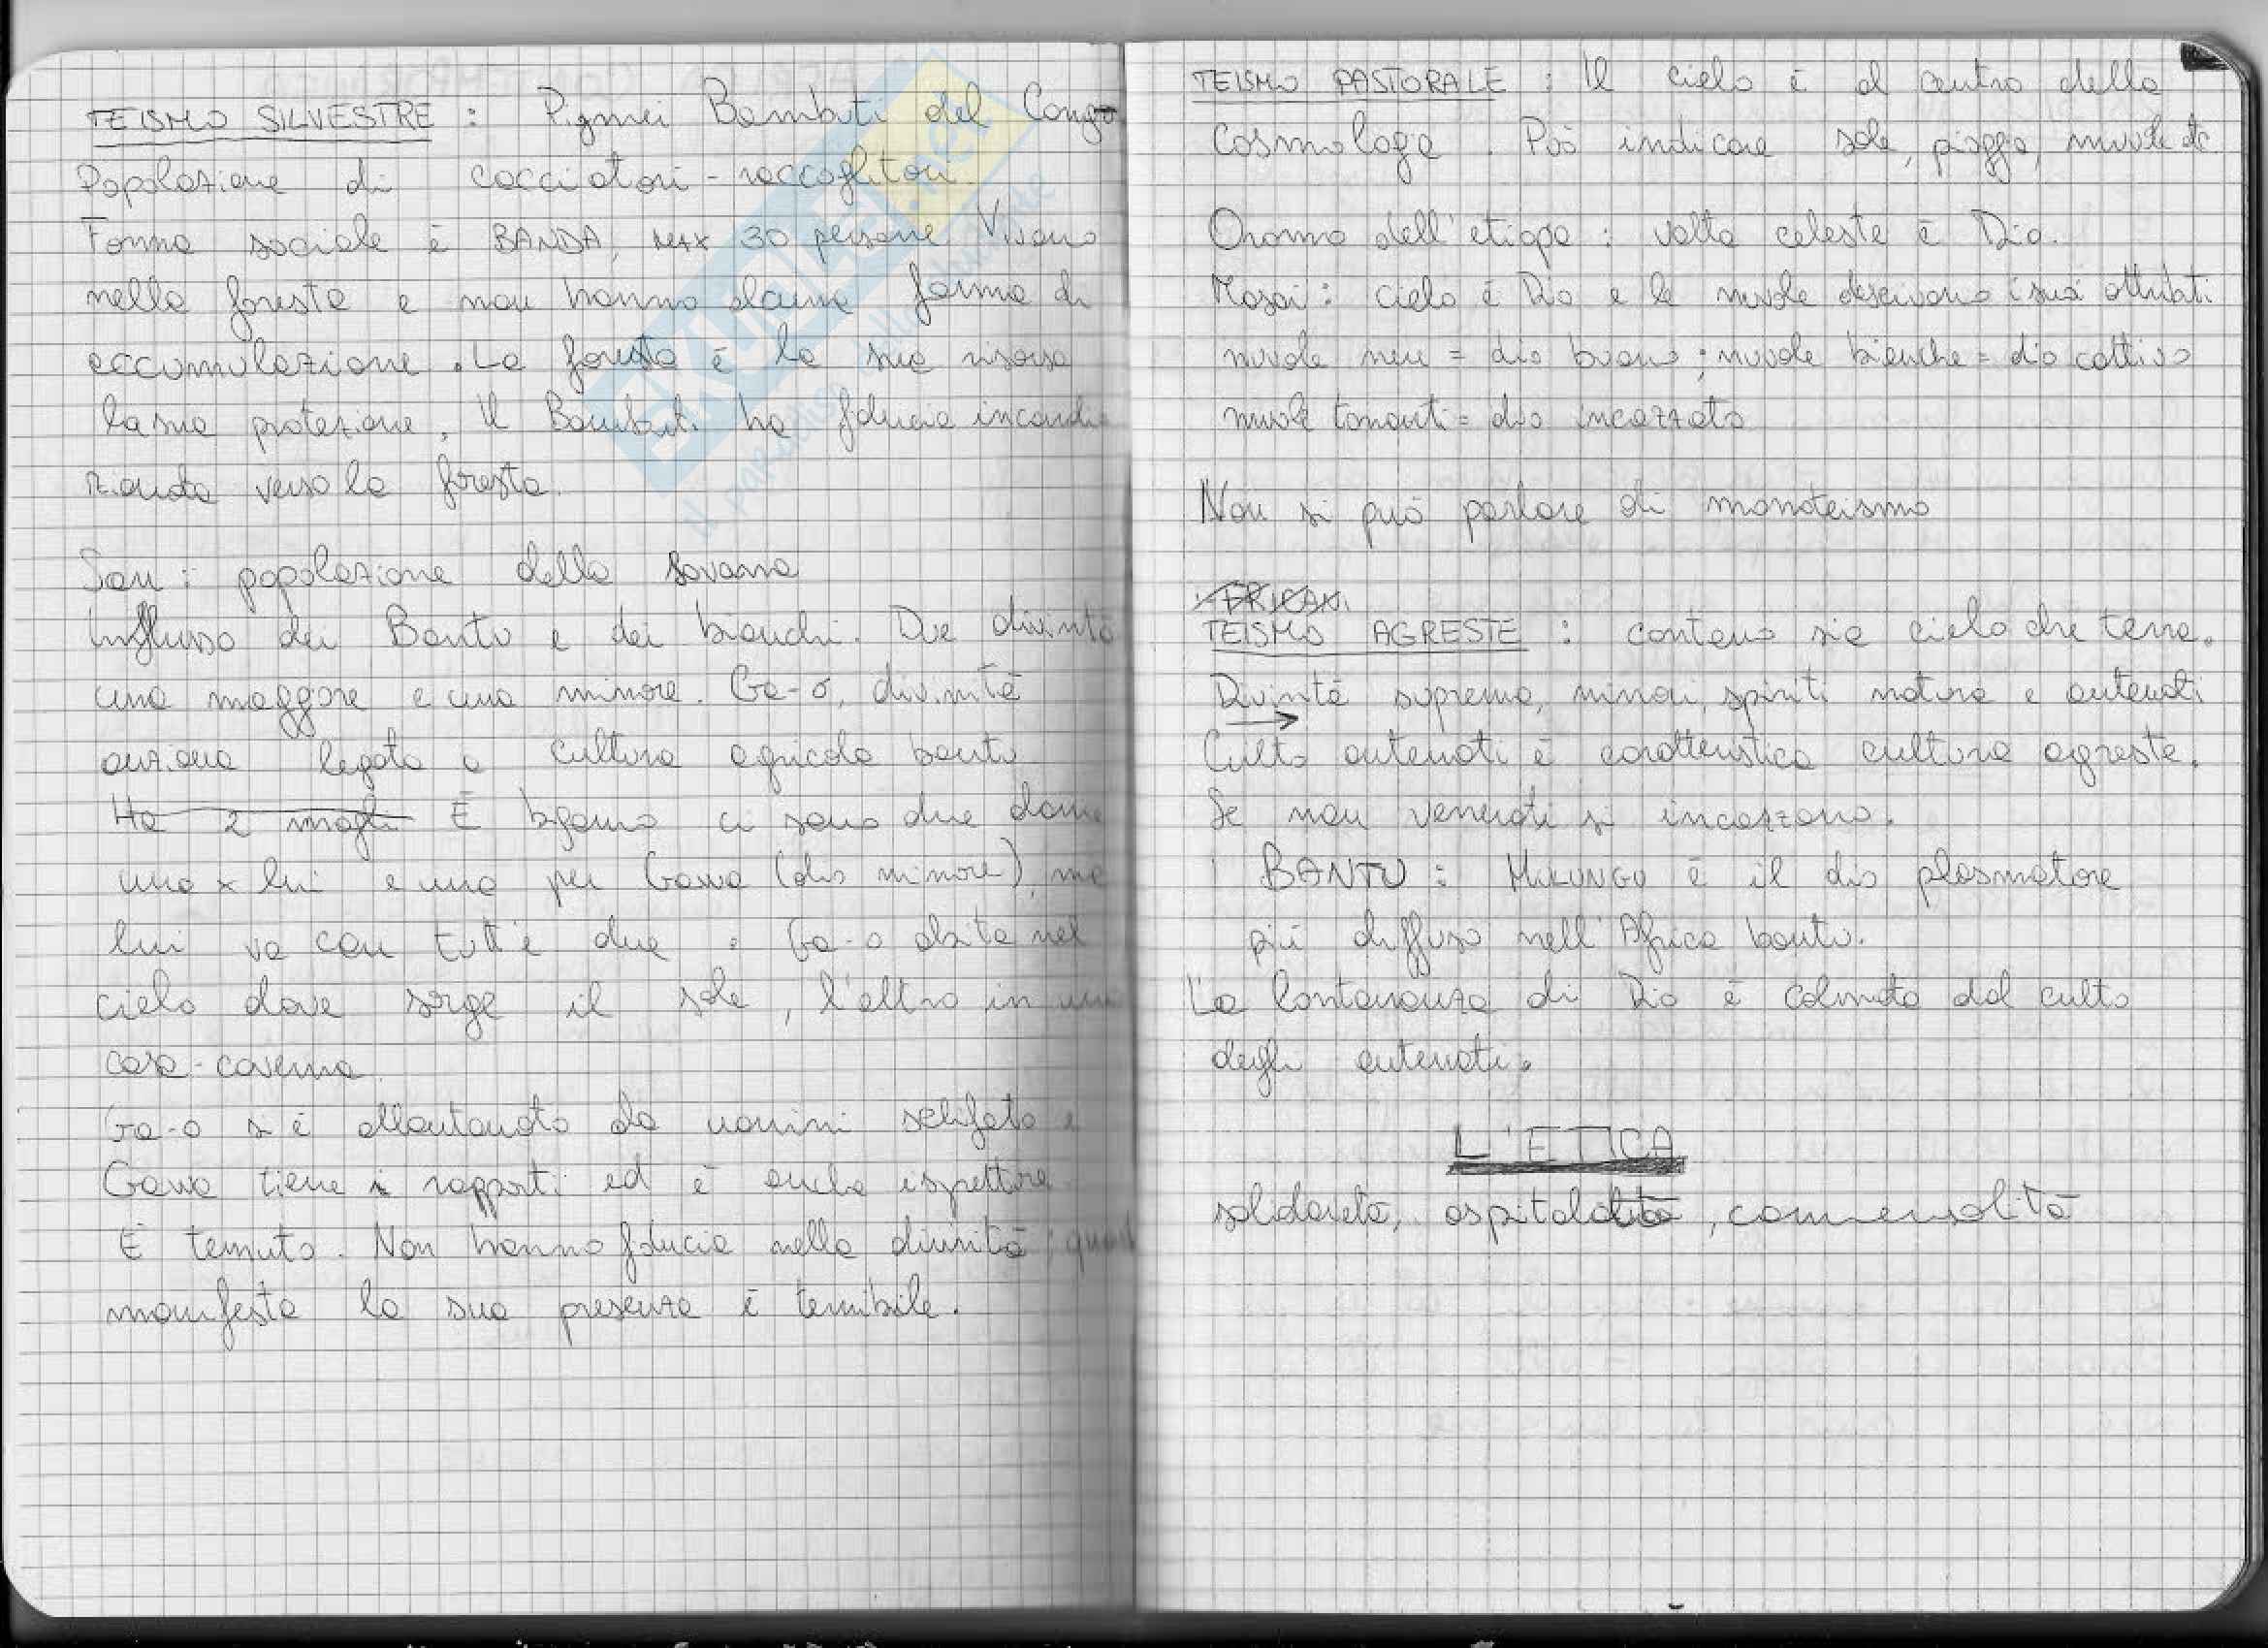 TEISMO SILVESTRE : Pigmei Bambuti del Congo
Popolazione di cacciatori - raccoglitori
Forma sociale è BANDA, MAX 30 persone. Vivono
nella foresta e non hanno alcuna forma di
accumulazione. La foresta è la sua risorsa
la sua protezione. Il Bambuti ha fiducia incondi
zionata verso la foresta.
San : popolazione della savana
Influsso dei Bantu e dei bianchi. Due divinità
una maggiore e una minore. Ga-o, divinità
anziana legata a cultura agricola bantu
Ha 2 mogli È bigamo ci sono due donne
una x lui e una per Gawa (dio minore), ma
lui va con tutt'e due. Ga-o abita nel
cielo dove sorge il sole, l'altro in una
casa-caverna
Ga-o si è allontanato da uomini
Gawa tiene i rapporti ed è anche ispettore
È temuto. Non hanno fiducia nella divinità
manifesta la sua presenza è terribile.
TEISMO PASTORALE : Il cielo è al centro della
Cosmologia. Può indicare sole, pioggia, nuvole etc.
Oromo dell'etiopa : volta celeste è Dio.
Masai : cielo è Dio e le nuvole descrivono i suoi attributi
nuvole nere = dio buono ; nuvole bianche = dio cattivo
nuvole tonanti = dio incazzato
Non si può parlare di monoteismo
TEISMO AGRESTE : contano sia cielo che terra.
Divinità suprema, minori, spiriti natura e antenati
→
Culto antenati è caratteristica cultura agreste.
Se non venerati si incazzano.
BANTU : MULUNGU è il dio plasmatore
più diffuso nell'Africa bantu.
La lontananza di Dio è colmata dal culto
degli antenati.
L'ETICA
solidarietà, ospitalità, commensalità
SKUOLA.net